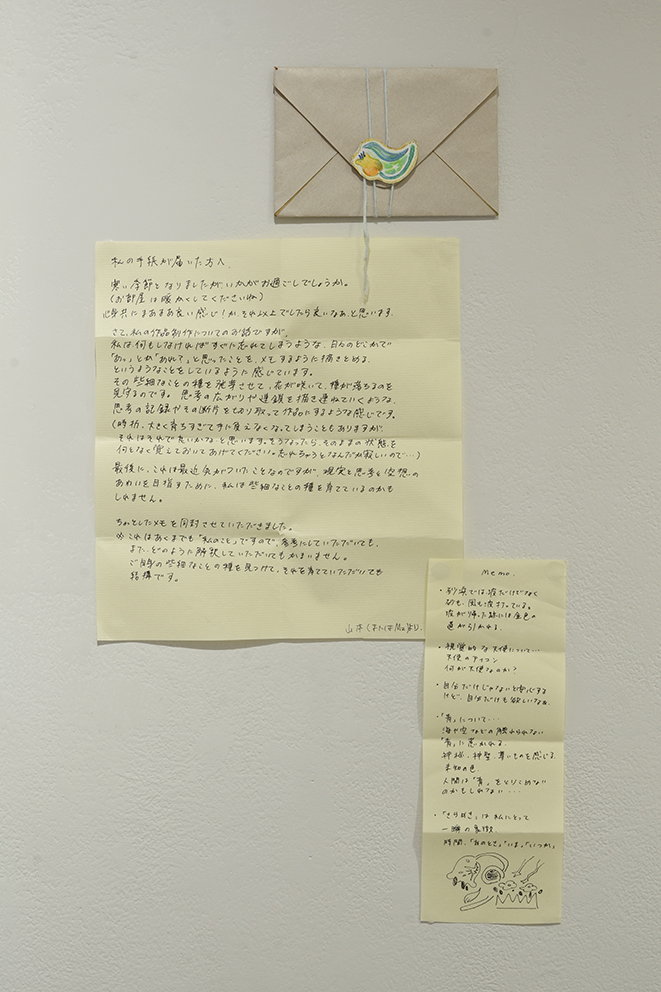 私の手紙が届いた方へ、
寒い季節となりましたが、いかがお過ごしでしょうか。
(お部屋は暖かくしてくださいね)
心身共にまあまあ良い感じ!か、それ以上でしたら良いなぁと思います。
さて、私の作品制作についてのお話ですが、
私は何もしなければすぐに忘れてしまうような、日々のどこかで
「あっ。」とか「あれ?」と思ったことを、メモするように描きとめる、
というようなことをしているように感じています。
その些細なことの種を発芽させて、花が咲いて、種が落ちるのを
見守るのです。思考の広がりや連鎖を描き連ねていくような、
思考の記録やその断片を切り取って作品にするような感じです。
(時折、大きく育ちすぎて手に負えなくなってしまうこともありますが、
それはそれで良いかな、と思います。そうなったら、そのままの状態を
何となく覚えておいてあげてください。忘れちゃうとなんだか寂しいので…)
最後に、これは最近気がついたことなのですが、現実と思考と空想の
あわいを目指すために、私は些細なことの種を育てているのかも
しれません。
ちょっとしたメモを同封させていただきました。
※これはあくまでも「私のこと」ですので、参考にしていただいても、
また、どのように解釈していただいてもかまいません。
ご自身の些細なことの種を見つけて、それを育てていただいても
結構です。
山本
より
memo.
・砂浜では波だけでなく
砂も、風も波打っている。
波が帰った跡には金色の
道が引かれる。
・視覚的な天使について…
天使のアイコン
何が天使なのか?
・自分だけじゃないと安心する
けど、自分だけも欲しいなぁ。
・「青」について…
海や空などの触れられない
「青」に惹かれる。
神秘、神聖、尊いものを感じる。
未知の色
人間は「青」をとりこめない
のかもしれない…
・「きらめき」は私にとって
一瞬の象徴
時間、「あのとき」「いま」「いつか」